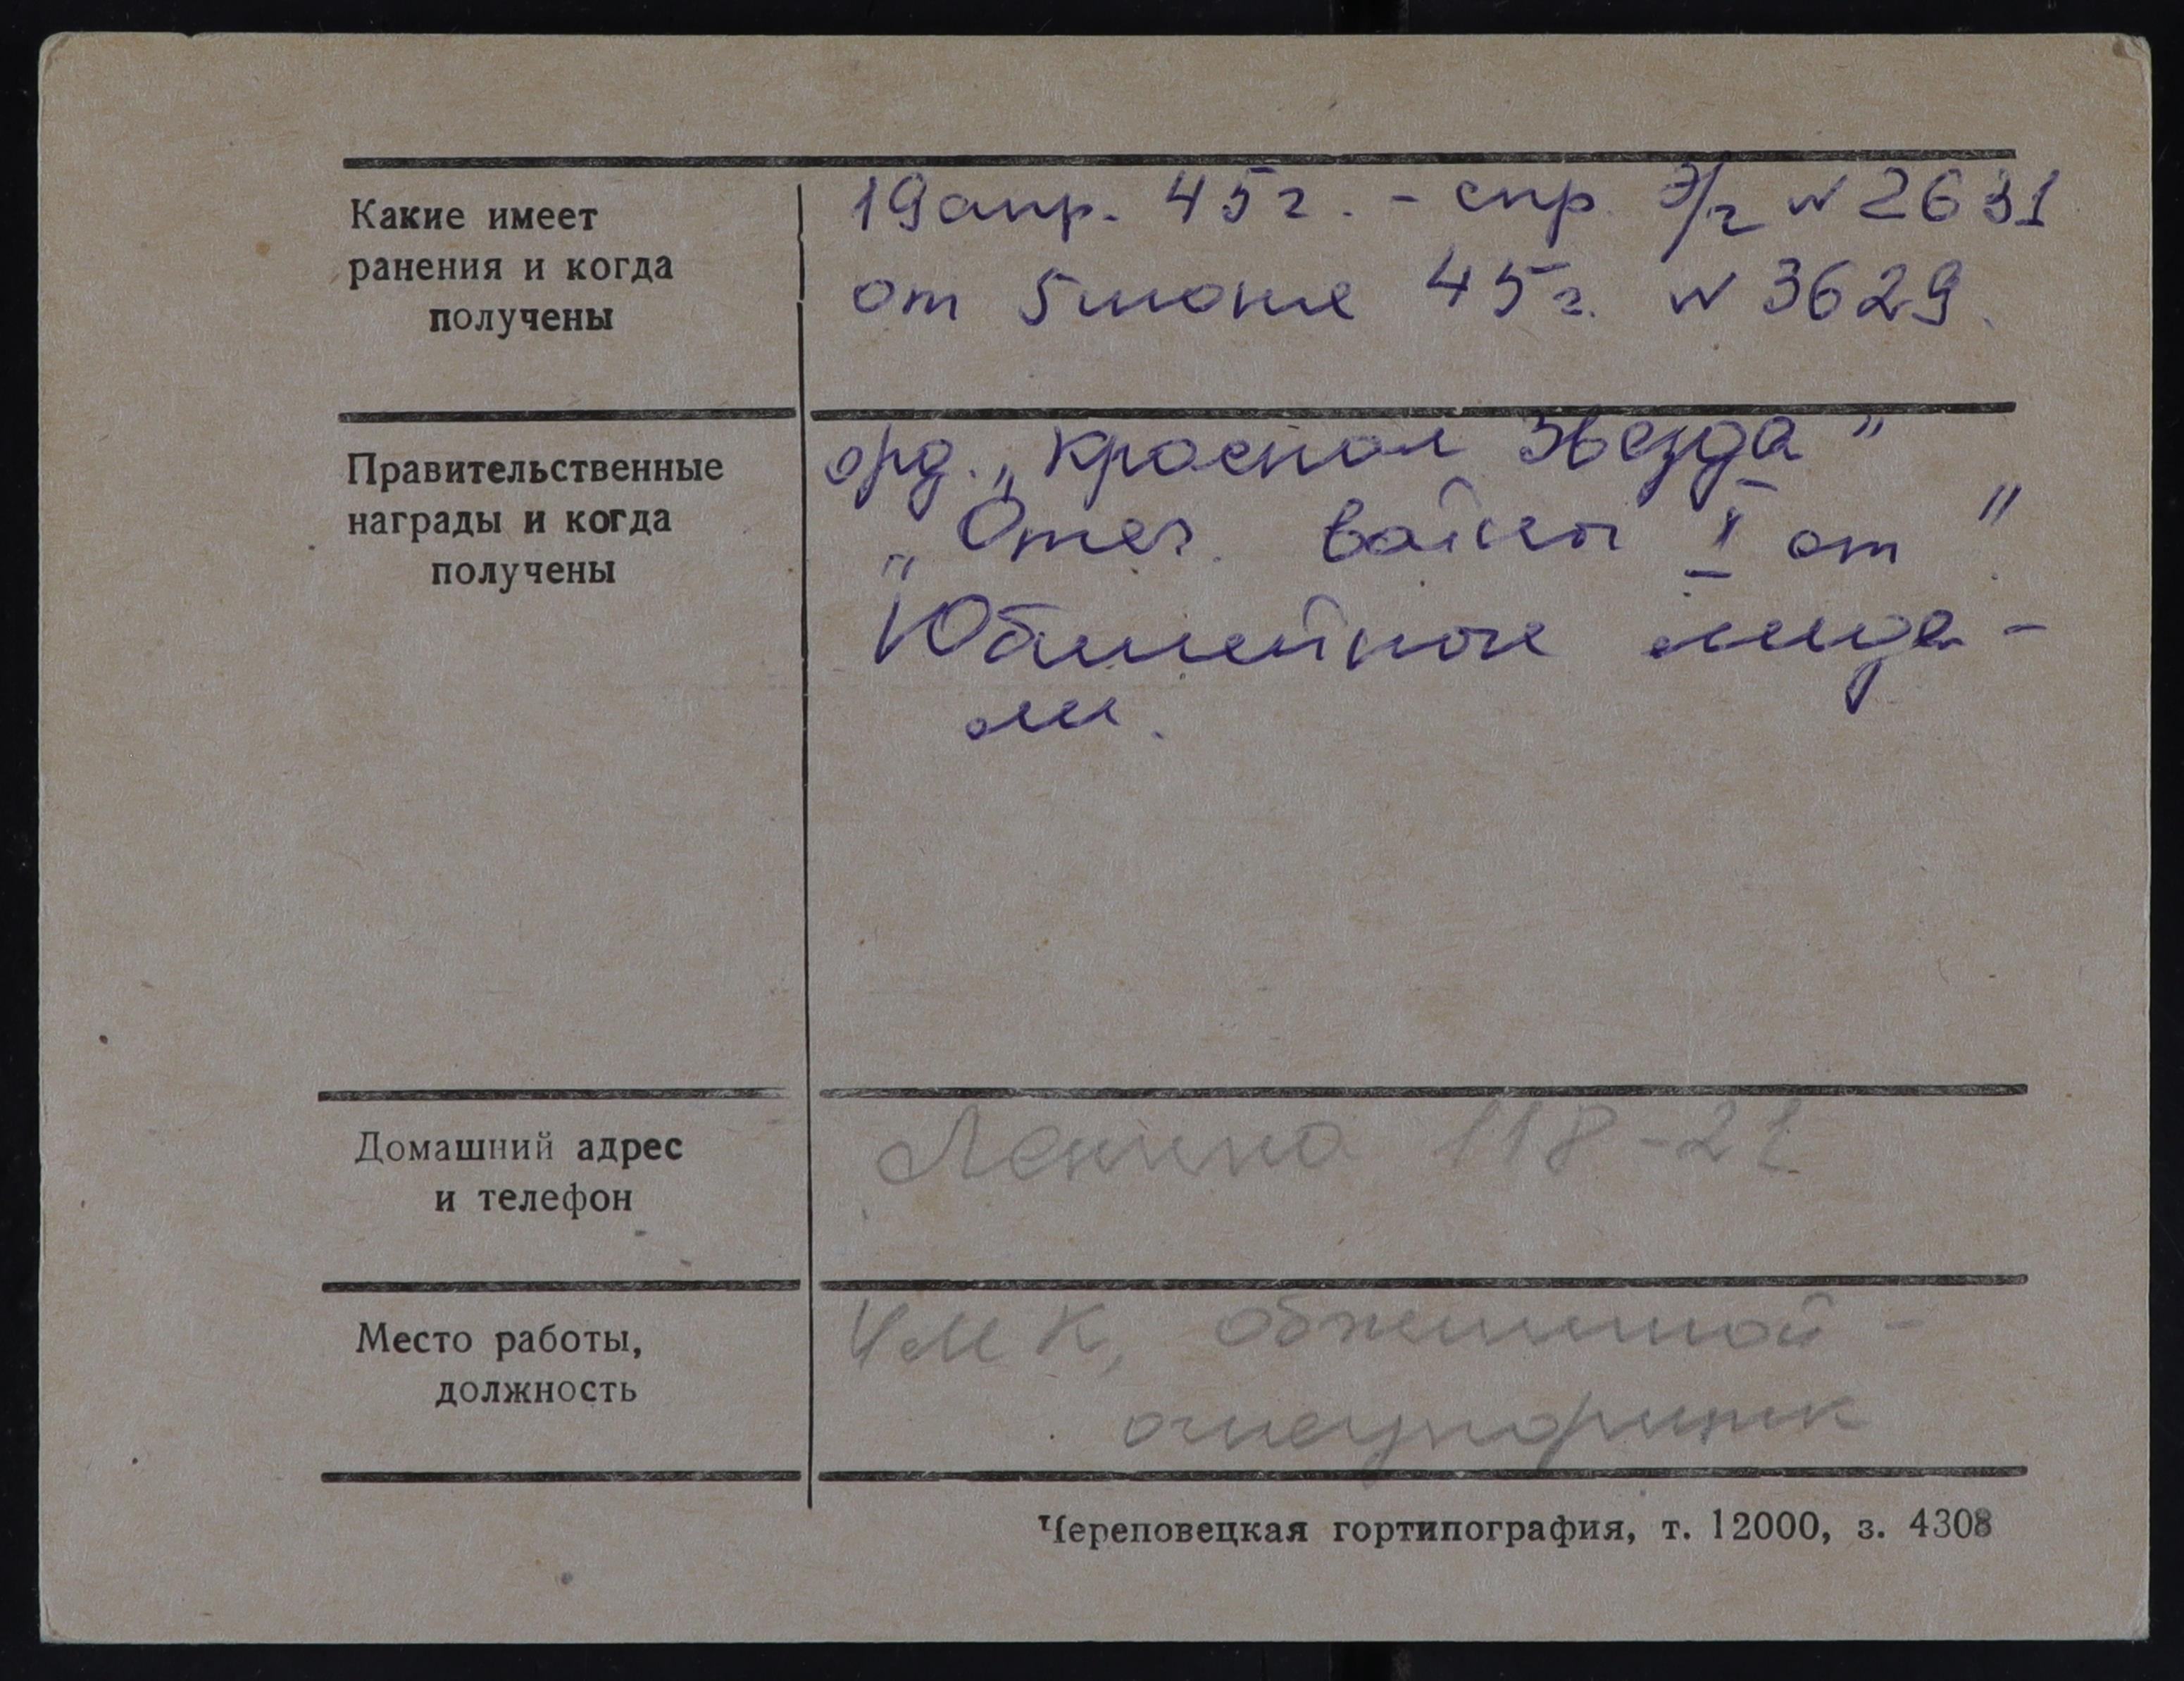 Какие имеет
ранения и когда
получены
19 апр. 45 г. - спр. Э/г № 2631
от 5 июня 45 г. № 3629.
Правительственные
награды и когда
получены
орд. „Красная Звезда"
„Отеч. войны I ст"
Юбилейные меда-
ли.
Домашний адрес
и телефон
Ленина 118-21
Место работы,
должность
ЧМК, обжимной -
огнеупорщик
Череповецкая гортипография, т. 12000, з. 4308